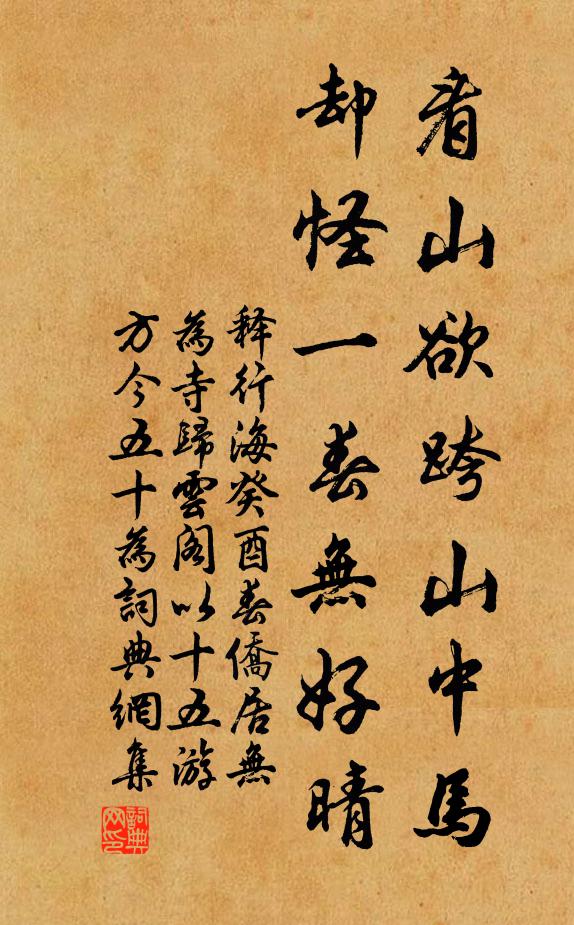 看山欲跨山中馬
却怪一春無好晴
释行海癸酉春僑居無
為寺歸雲閣以十五游
方今五十為詞典網集
詞典网印